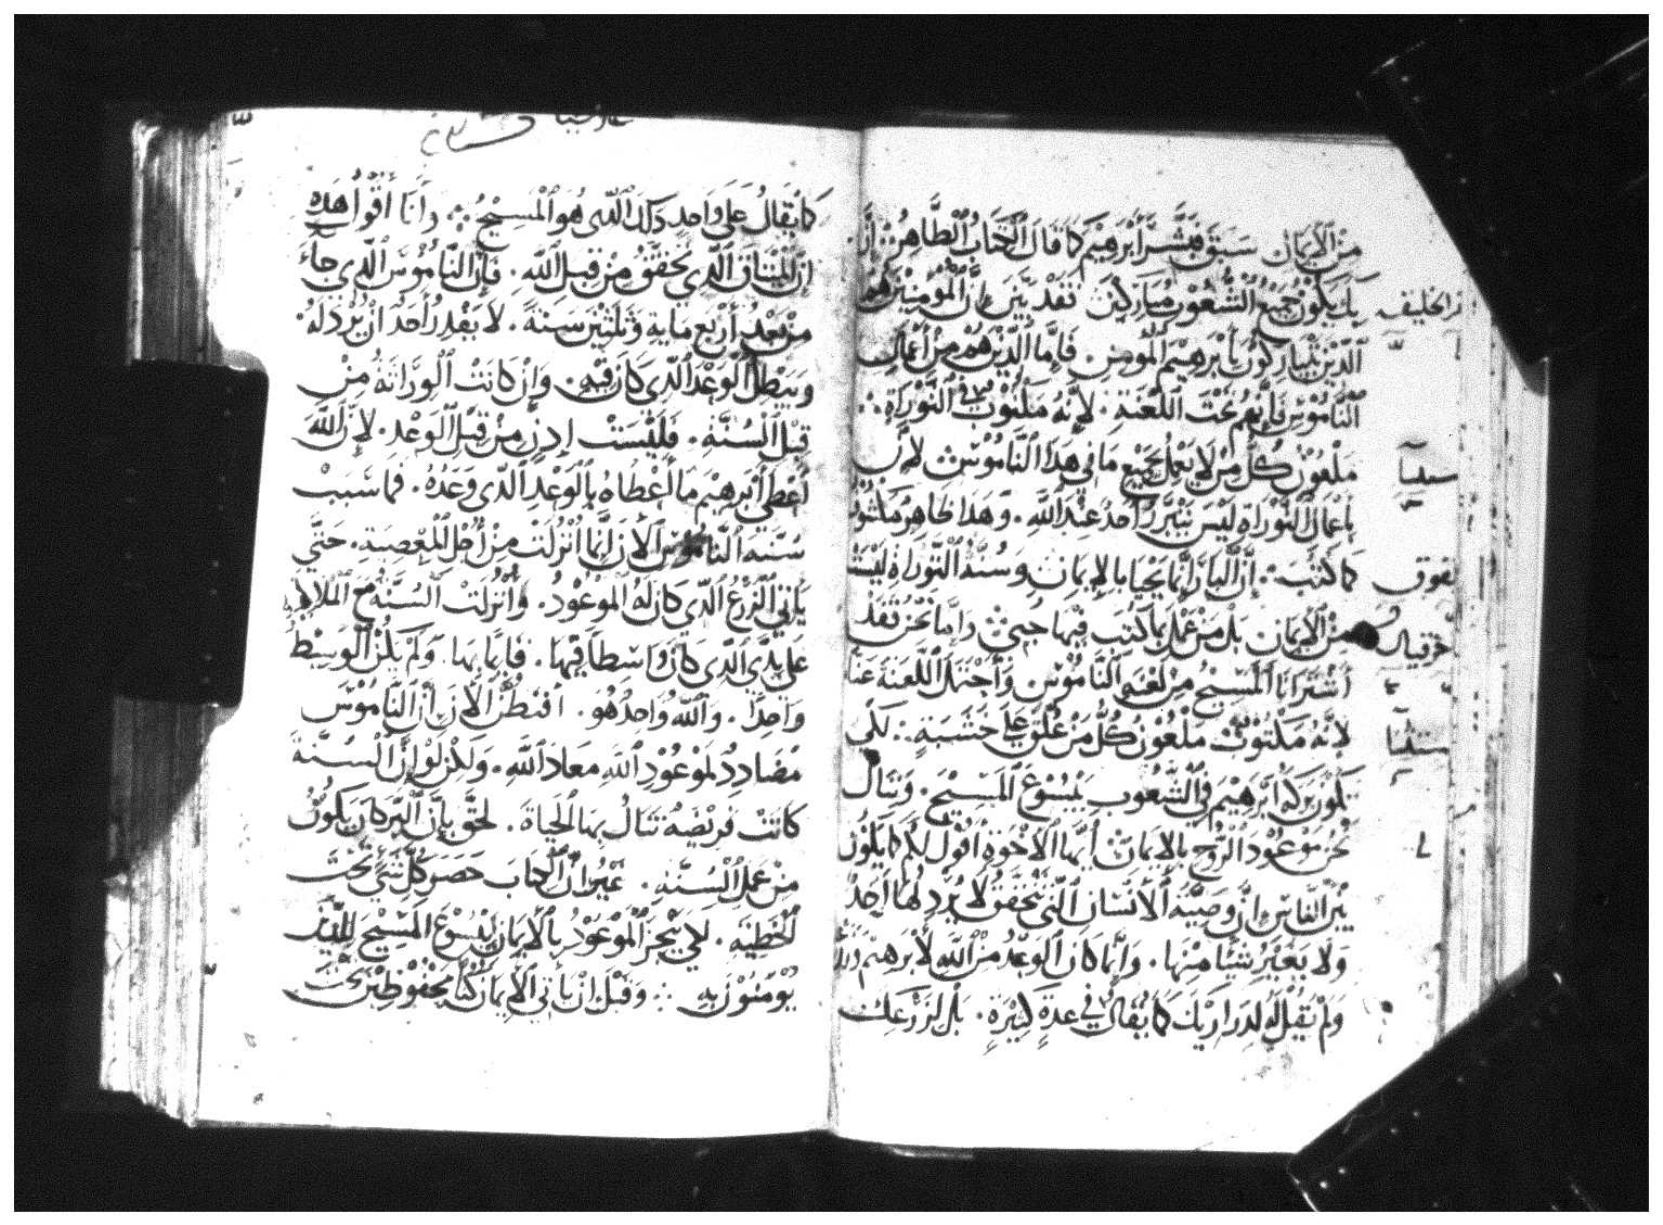 من الايمان سَبَقَ فبَشَّرَ أبرهيم كما قال الكتاب الطاهر ان
بك يكون جميع الشعوب مباركين فقد يتبين ان المومنين هم
الذين يتباركون بأبرهيم المومن. فاما الذين هم من أعمال
الناموس فإنهم تحت اللعنة. لأنه مكتوب في التوراة
ملعون كل من لا يعمل بجميع ما في هذا الناموس لأن
بأعمال التوراة ليس يتبرر أحد عند الله. وهذا ظاهر مكتوب
كما كتب. إن البار إنما يحيا بالإيمان وسنة التوراة ليست
من الإيمان بل من عمل بما كتب فيها حيي وإنما نحن فقد
أشترانا المسيح من لعنة الناموس وأحتمل اللعنة عنا
لانه مكتوب ملعون كل من عُلّق على خشبة لكي
تكون بركة أبرهيم في الشعوب بيسوع المسيح. وننال
نحن موعود الروح بالايمان أيها الأخوة أقول لكم كما يكون
بين الناس ان وصية الأنسان التي تحقق لا يردلها أحد
ولا يغير شيا منها. وإنما كان الوعد من الله لأبرهيم وزرعه
ولم يقل له لدراريك كما يقال في عدة كثيرة. بل لزرعك
الخليقه
سدنا
حزقيال
سدنا
كما يقال على واحد ذلك الذي هو المسيح وانا أقول هذه
ان الميثاق الذي تحقق من قبل الله. فإن الناموس الذي جاء
من بعد أربع ماية وثلثين سنة. لا يقدر أحد ان يرذله.
ويبطل الوعد الذي كان فيه. وان كانت الوراثة من
قبل السنة. فليست إذن من قبل الوعد. لإن الله
أعطى أبرهيم ما أعطاه بالوعد الذي وعده. فما سبب
سنة الناموس الأن إنما انزلت من أجل المعصية. حتى
يأتي الزرع الذي كان له الموعود. وأنزلت السنة مع الملايكة
على يدي الذي كان واسطا فيها. فاما بها ولم يكن الوسيط
واحدا. والله واحد هو. افنظن الآن أن الناموس
مضادد لموعود الله معاذ الله. ولكن لو أن السنة
كانت فريضة تنال بها الحياة. لحق بإن البر كان يكون
من عمل السنة. غير ان الكتاب حصر كل شي تحت
الخطية. لكي ينجز الموعود بالأيمان ليسوع المسيح للذين
يومنون به وقبل ان يأتي الأيمان كنا محفوظين تحت